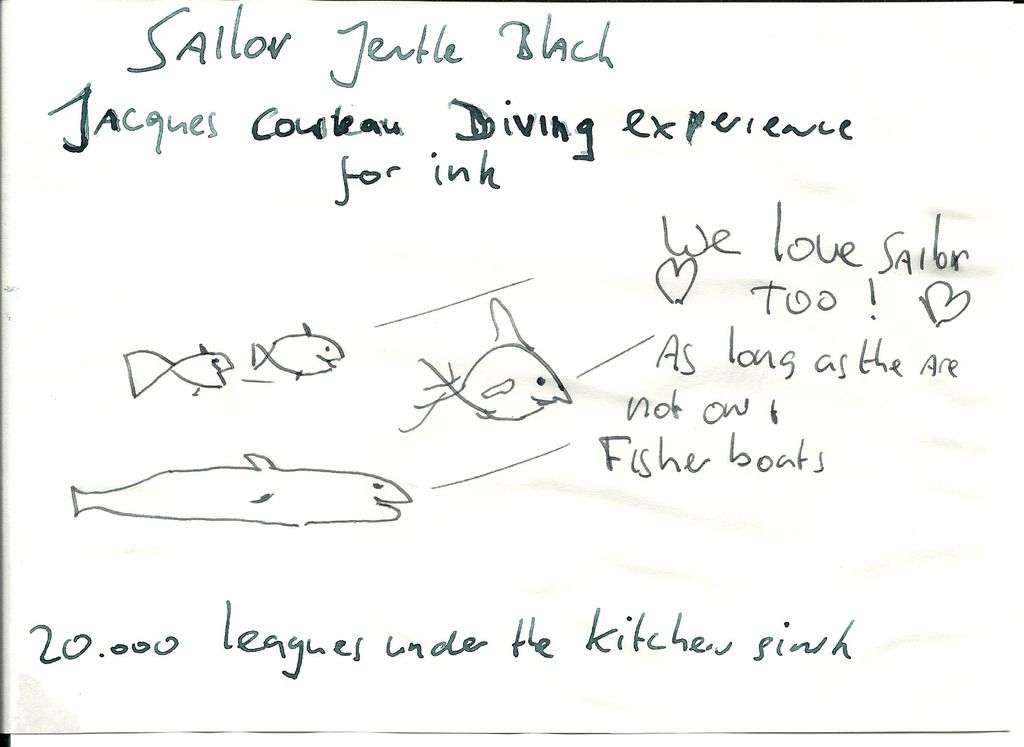 Sailor Jentle Black
Jacques Cousteau Diving experience
for ink
We love Sailor
TOO!
As long as the are
not on
Fisher boats
20.000 leagues under the kitchen sinnk